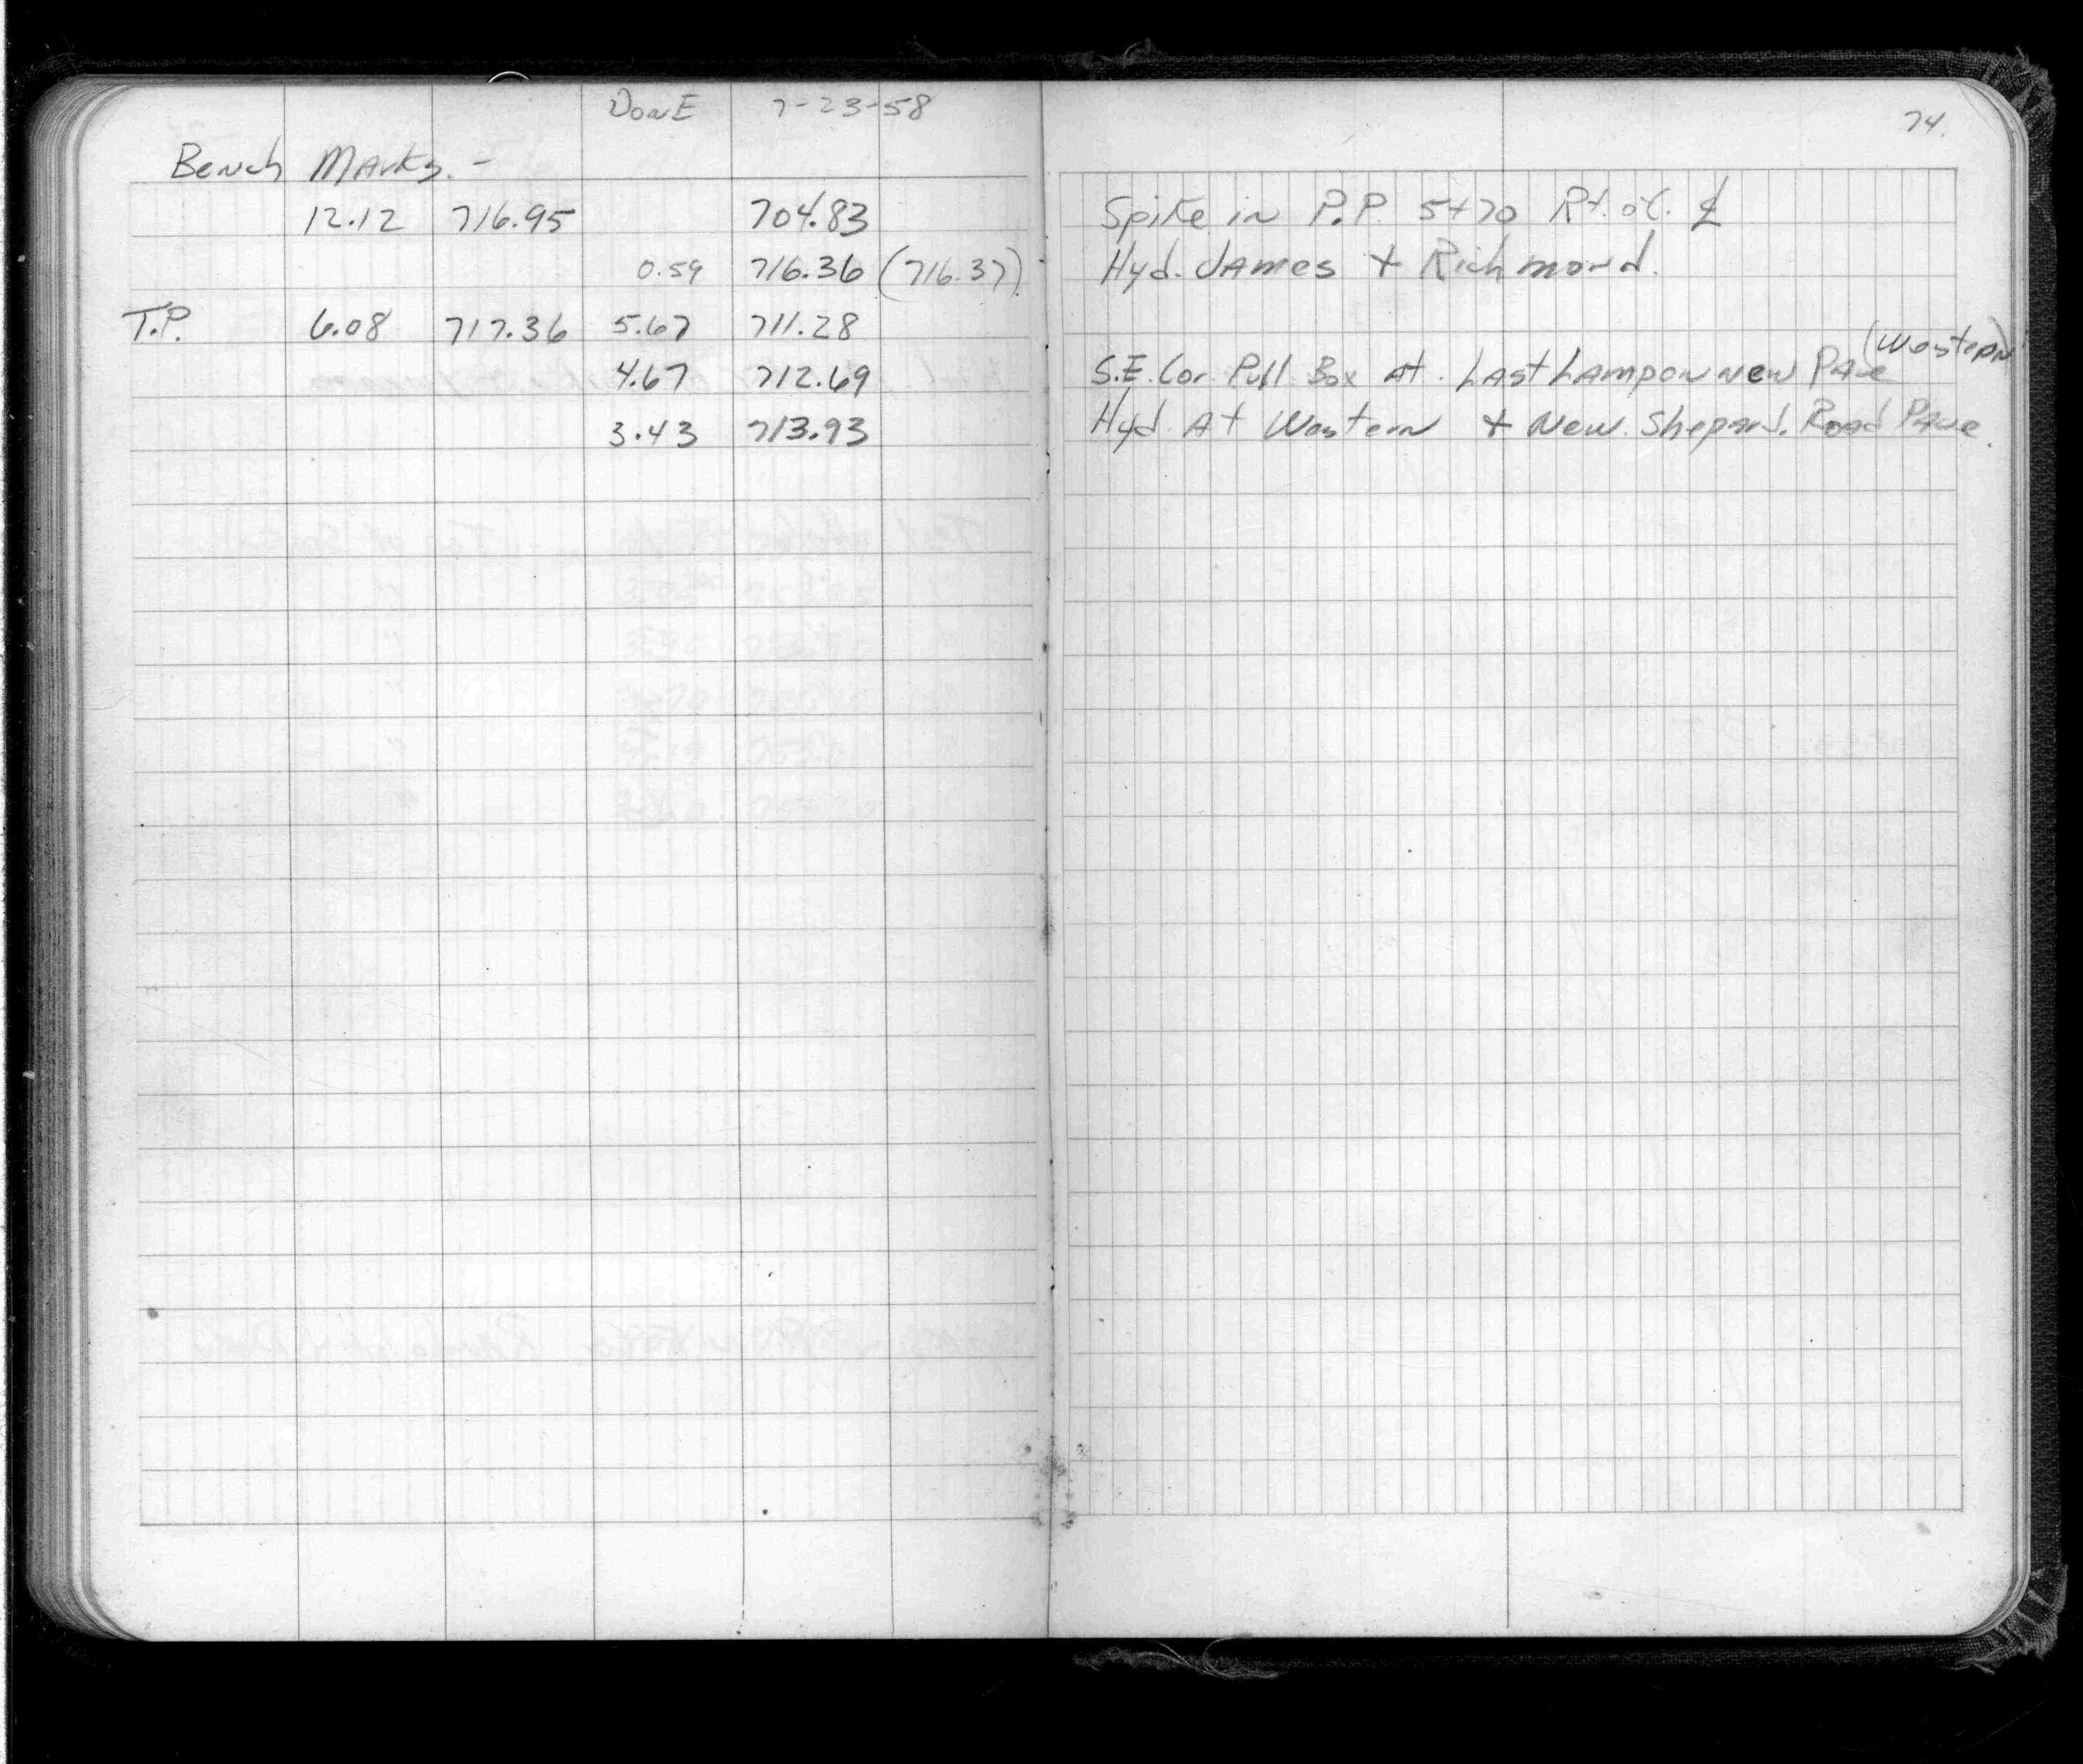 DonE 7-23-58
74.
Bench Marks. -
12.12 716.95 704.83 Spike in P.P. 5+70 Rt. of. ℄
0.59 716.36 (716.37) Hyd. James + Richmond.
T.P. 6.08 717.36 5.67 711.28
(Western)
4.67 712.69 S.E. Cor. Pull Box At. Last Lamp on new Pave
3.43 713.93 Hyd. At Western + New. Shepard. Road Pave.